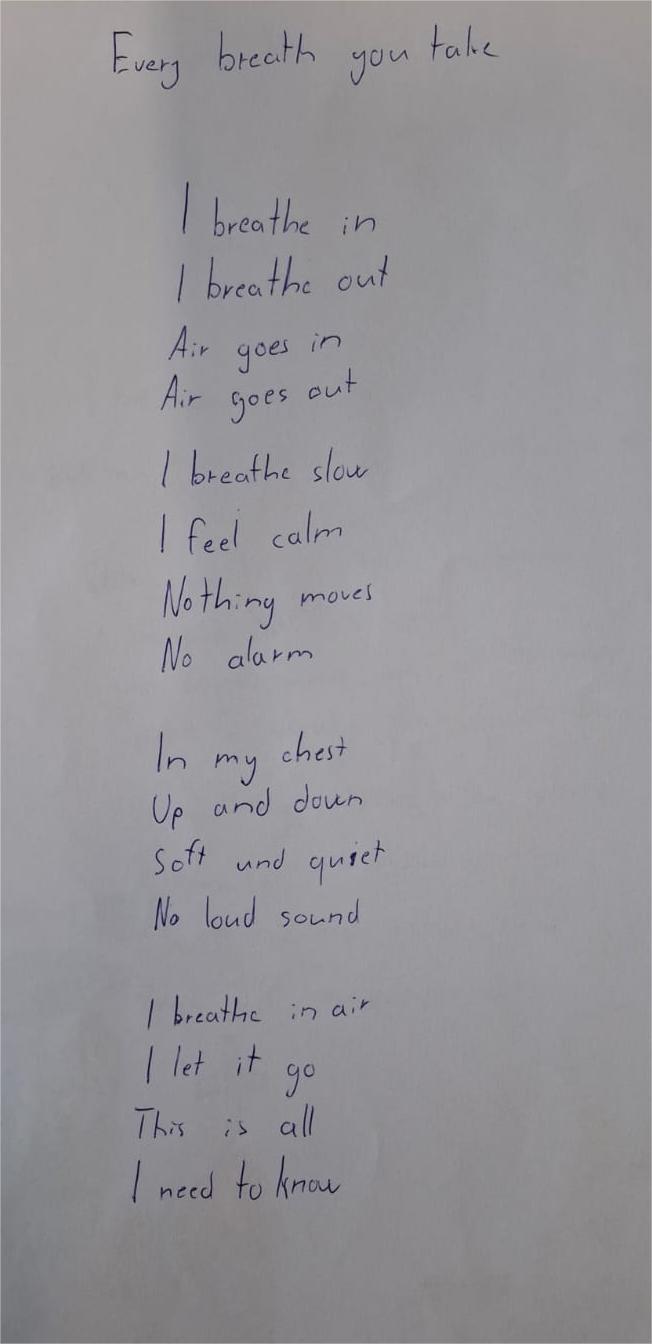 Every breath you take
I breathe in
I breathe out
Air goes in
Air goes out
I breathe slow
I feel calm
Nothing moves
No alarm
In my chest
Up and down
Soft und quiet
No loud sound
I breathe in air
I let it go
This is all
I need to know